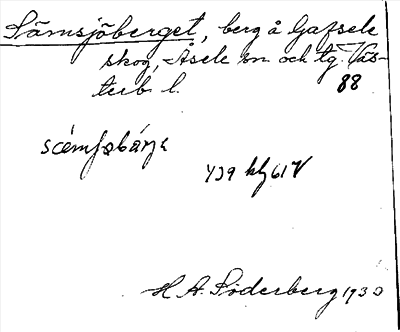 Sämsjöberget, berg å Gafsele
skog, Åsele sn och tg. Väs-
terb. l. 88
439 61 V
H. A. Söderberg 1930